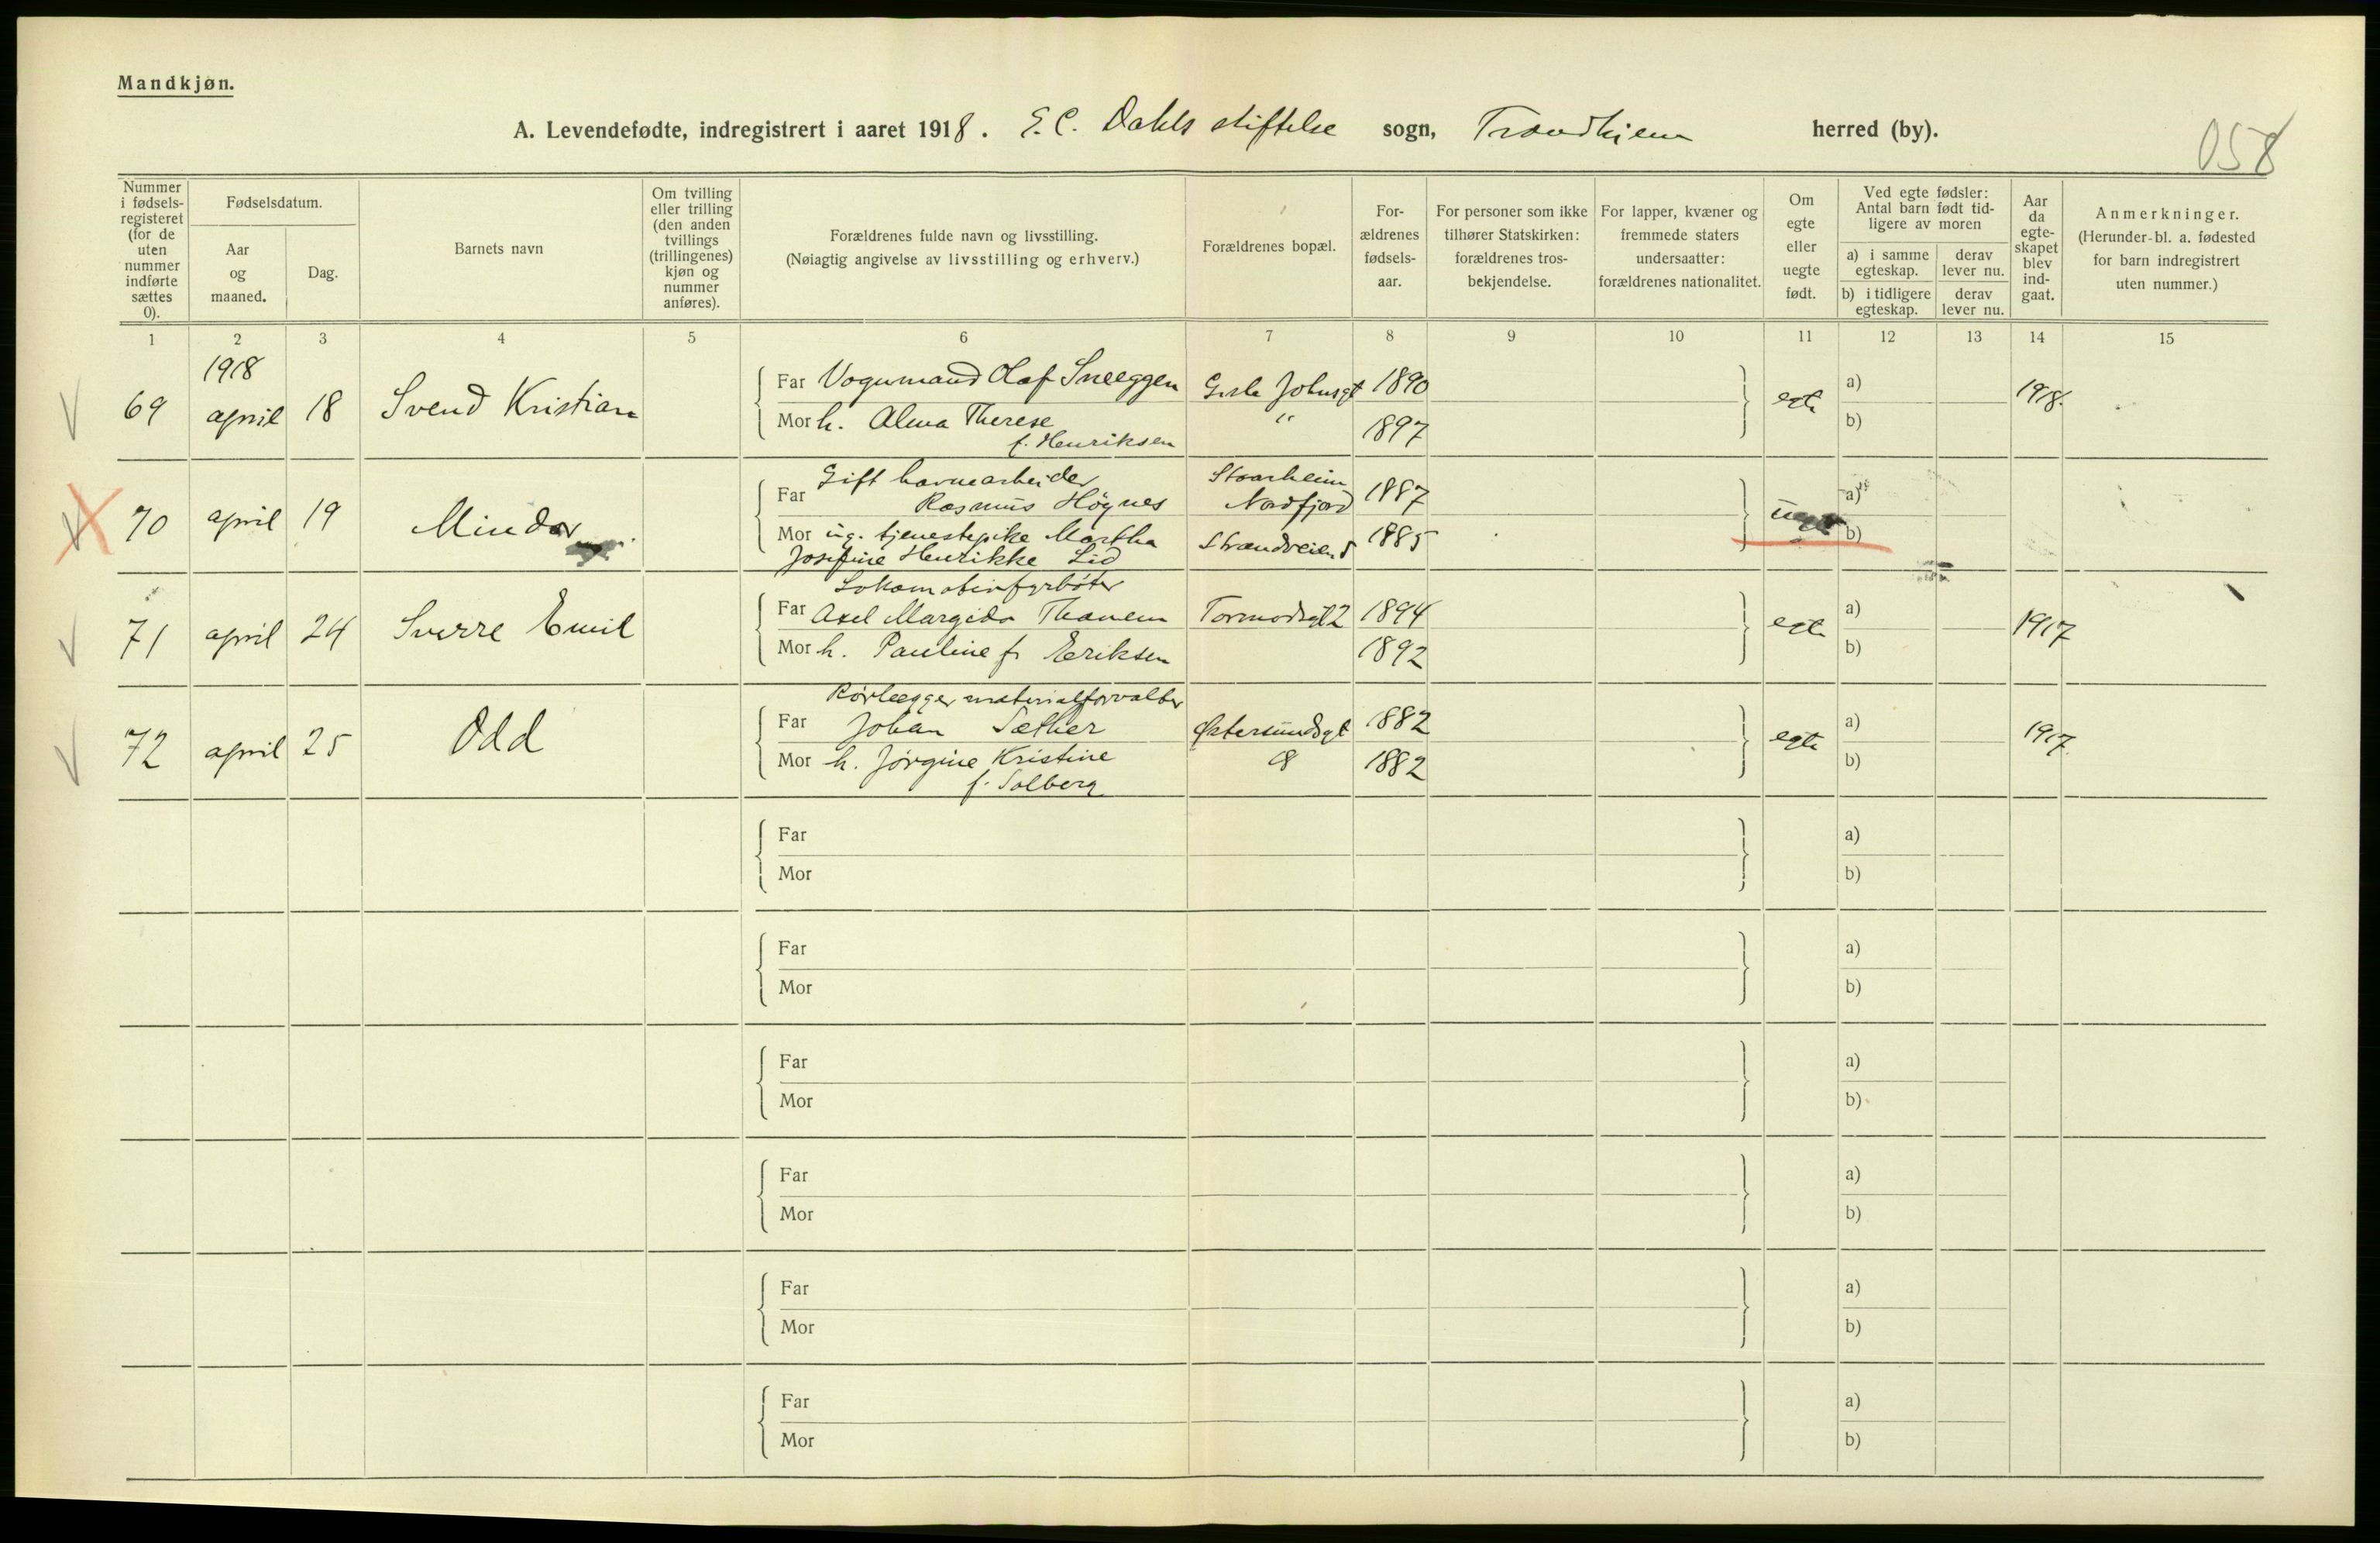 Mandkjøn.
A. Levendefødte, indregistrert i aaret 1918. E. C. Dahls stiftelse sogn, Trondhjem herred (by).
058
Nummer i fødsels-registeret (for de uten nummer indførte sættes 0).
Fødselsdatum.
Aar og maaned.
Dag.
Barnets navn
Om tvilling eller trilling (den anden tvillings (trillingenes) kjøn og nummer anføres).
Forældrenes fulde navn og livsstilling.
(Nøiagtig angivelse av livsstilling og erhverv.)
Forældrenes bopæl.
For-ældrenes fødsels-aar.
For personer som ikke tilhører Statskirken: forældrenes tros-bekjendelse.
For lapper, kvæner og fremmede staters undersaatter: forældrenes nationalitet.
Om egte eller uegte født.
Ved egte fødsler: Antal barn født tid-ligere av moren
a) i samme egteskap.
derav lever nu.
b) i tidligere egteskap.
derav lever nu.
Aar da egte-skapet blev ind-gaat.
Anmerkninger.
(Herunder bl. a. fødested for barn indregistrert uten nummer.)
1 2 3 4 5 6 7 8 9 10 11 12 13 14 15
1918
69 april 18 Svend Kristian
Far Vognmand Olaf Sneeggen Gisle Johnsgt 1890
Mor h. Alma Therese " 1897
f. Henriksen
egte a) b) 1918.
70 april 19 Mindor
Gift havnearbeider Staarheim
Far Rasmus Høgnes Nordfjord 1887
Mor ug. tjenestepike Martha Strandveien 5 1885
Josefine Henrikke Lid
uegte a) b)
71 april 24 Sverre Emil
Lokomotivfyrbøter
Far Axel Margido Thanem Tormodsgt 2 1894
Mor h. Pauline f. Eriksen 1892
egte a) b) 1917
72 april 25 Odd
Rørlægger materialforvalter
Far Johan Sæther Østersundsgt 1882
Mor h. Jørgine Kristine 8 1882
f. Solberg
egte a) b) 1917.
Far a)
Mor b)
Far a)
Mor b)
Far a)
Mor b)
Far a)
Mor b)
Far a)
Mor b)
Far a)
Mor b)